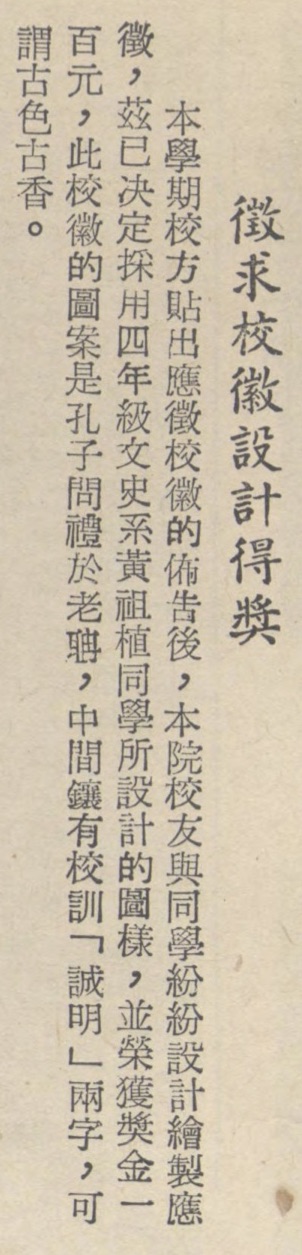 徵求校徽設計得獎
本學期校方貼出應徵校徽的佈告後，本院校友與同學紛紛設計繪製應
徵，茲已決定採用四年級文史系黃祖植同學所設計的圖樣，並榮獲獎金一
百元，此校徽的圖案是孔子問禮於老聃，中間鑲有校訓「誠明」兩字，可
謂古色古香。